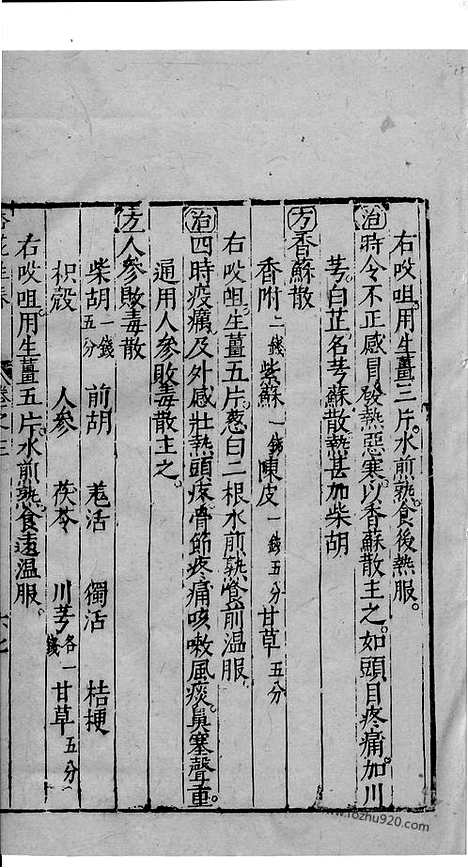 右㕮咀用生薑三片水煎熟食後熱服
治時令不正感冒發熱惡寒以香蘇散主之如頭目疼痛加川
芎白芷名芎蘇散熱甚加柴胡
方香蘇散
香附二錢紫蘇一錢陳皮一錢五分甘草五分
右㕮咀生薑五片葱白二根水煎熟食前温服
治四時疫癘及外感壯熱頭疼骨節疼痛咳嗽風痰鼻塞聲重
通用人參敗毒散主之
方人參敗毒散
柴胡一錢五分 前胡 羗活 獨活 桔梗
枳殼 人參 茯苓 川芎各一錢甘草五分
右㕮咀用生薑五片水煎熟食遠温服
卷之三
www.fozhu920.com